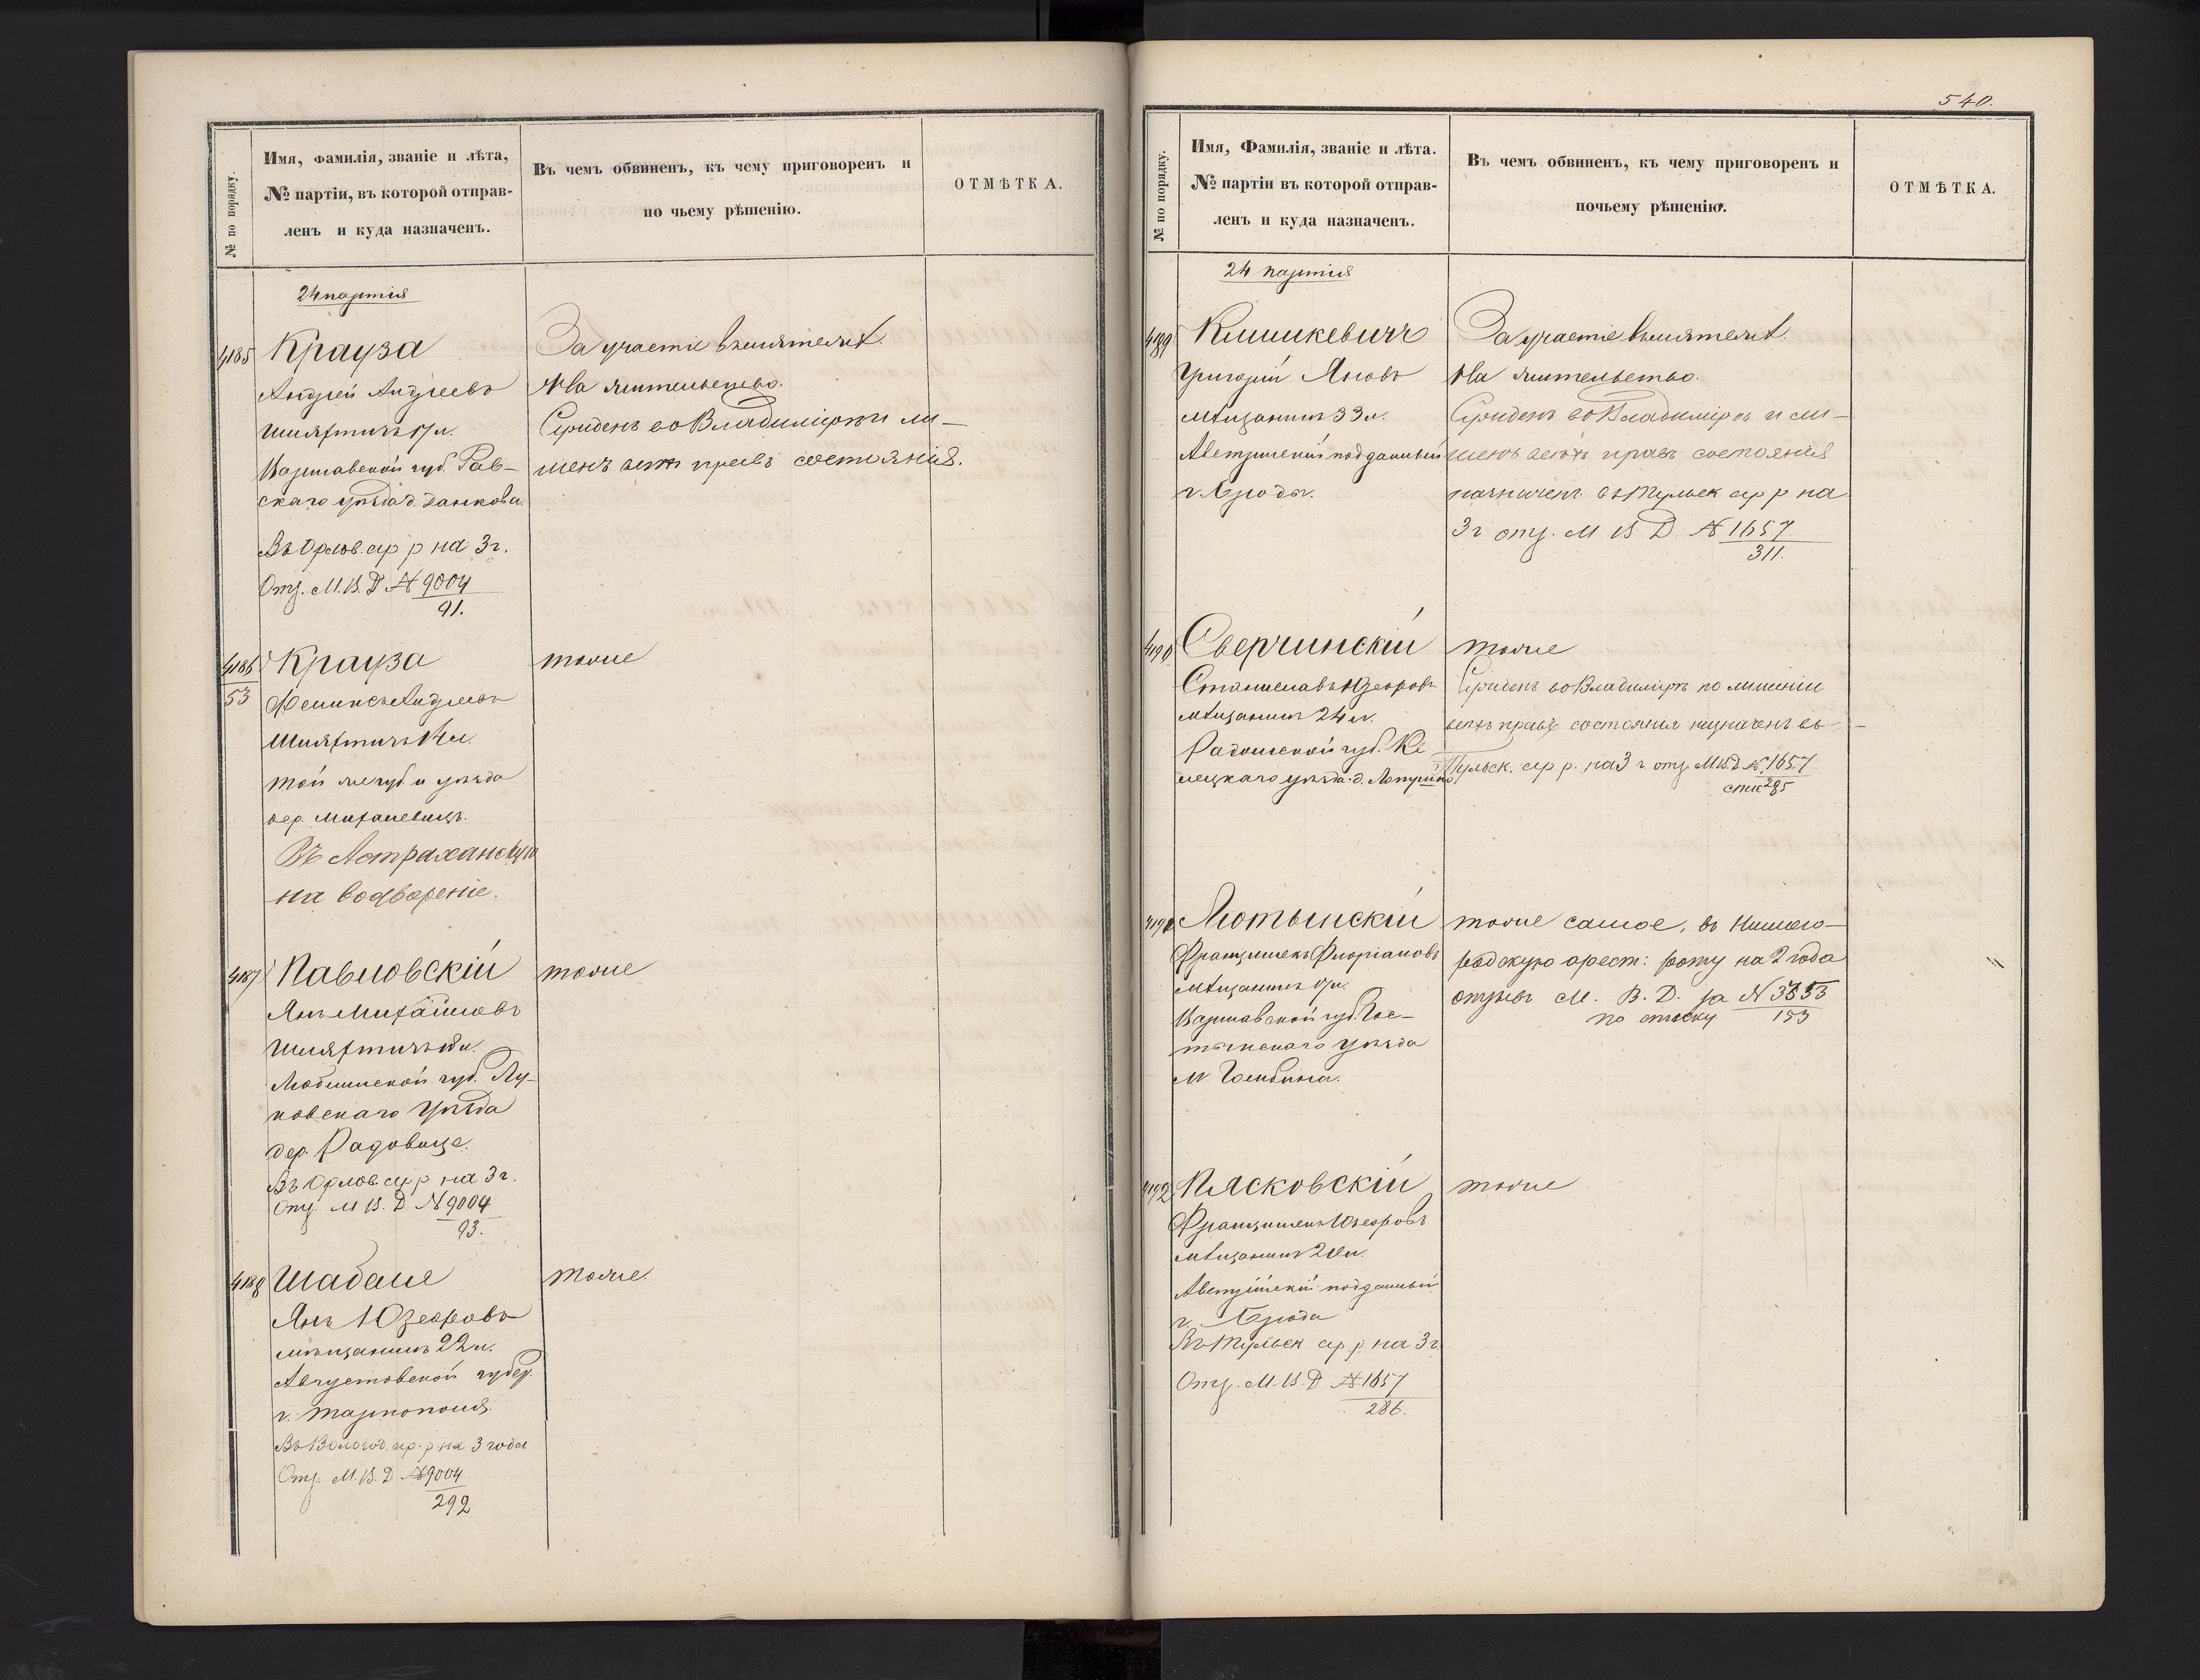 № по порядку.
Имя, фамилія, званіе и лѣта,
№ партіи, въ которой отправ-
ленъ и куда назначенъ.
Въ чемъ обвиненъ, къ чему приговоренъ и
по чьему рѣшенію.
ОТМѢТКА.
24 партія
4185
Крауза
Андрей Андреевъ
шляхтичъ 17 л.
Варшавской губ. Рав-
скаго уѣзда д. Данкова.
Въ Орлов. ар р на 3 г.
Отз. М. В. Д № 9004
91.
За участіе въ мятеж.
На жительство.
Сужденъ во Владимірѣ и ли-
шенъ всѣхъ правъ состоянія.
4186
53
Крауза
Феликсъ Андреевъ
шляхтичъ л.
той же губ и уѣзда
дер. Михалевицъ.
Въ Астраханскую
на водвореніе.
тоже
4187
Павловскій
Янъ Михайловъ
шляхтичъ л.
Люблинской губ. Лу-
ковскаго уѣзда
дер. Радовице.
Въ Орлов. ар р на 3 г.
Отз. М В. Д № 9004
93.
тоже
4188
Шабаце
Янъ Юзефовъ
мѣщанинъ 22 л.
Августовской губер.
г. Тарнополя.
Въ Вологод. ар. р на 3 года
Отз. М. В. Д № 9004
292
тоже.
540.
№ по порядку.
Имя, Фамилія, званіе и лѣта.
№ партіи въ которой отправ-
ленъ и куда назначенъ.
Въ чемъ обвиненъ, къ чему приговоренъ и
почьему рѣшенію.
ОТМѢТКА.
24 партія
4189
Климкевичъ
Григорій Яновъ
мѣщанинъ 33 л.
Австрійскій подданный
г. Броды.
За участіе въ мятеж.
На жительство.
Сужденъ во Владимірѣ и ли-
шенъ всѣхъ правъ состоянія
назначенъ въ Тульск ар р на
3 г отз. М В Д № 1657
311.
4190
Сверчинскій
Станиславъ Юзефовъ
мѣщанинъ 24 л.
Радомской губ. Ке
лецкаго уѣзда д. Лопушно
тоже
Сужденъ во Владимірѣ по лишеніи
всѣхъ правъ состоянія назначенъ въ
Тульск. ар р. на 3 г. отз. М В. Д № 1657
спис 285
4191
Лютынскій
Францишекъ Флоріановъ
мѣщанинъ л.
Варшавской губ. Гос-
тынскаго уѣзда
м. Гомбина.
тоже самое, въ Нижего-
родскую арест: роту на 2 года
отзывъ М. В. Д. за № 3353
по списку 153
4192
Плясковскій
Францишекъ Юзефовъ
мѣщанинъ л.
Австрійскій подданный
г. Броды
Въ Тульск ар р на 3 г.
Отз. М. В. Д № 1657
286.
тоже